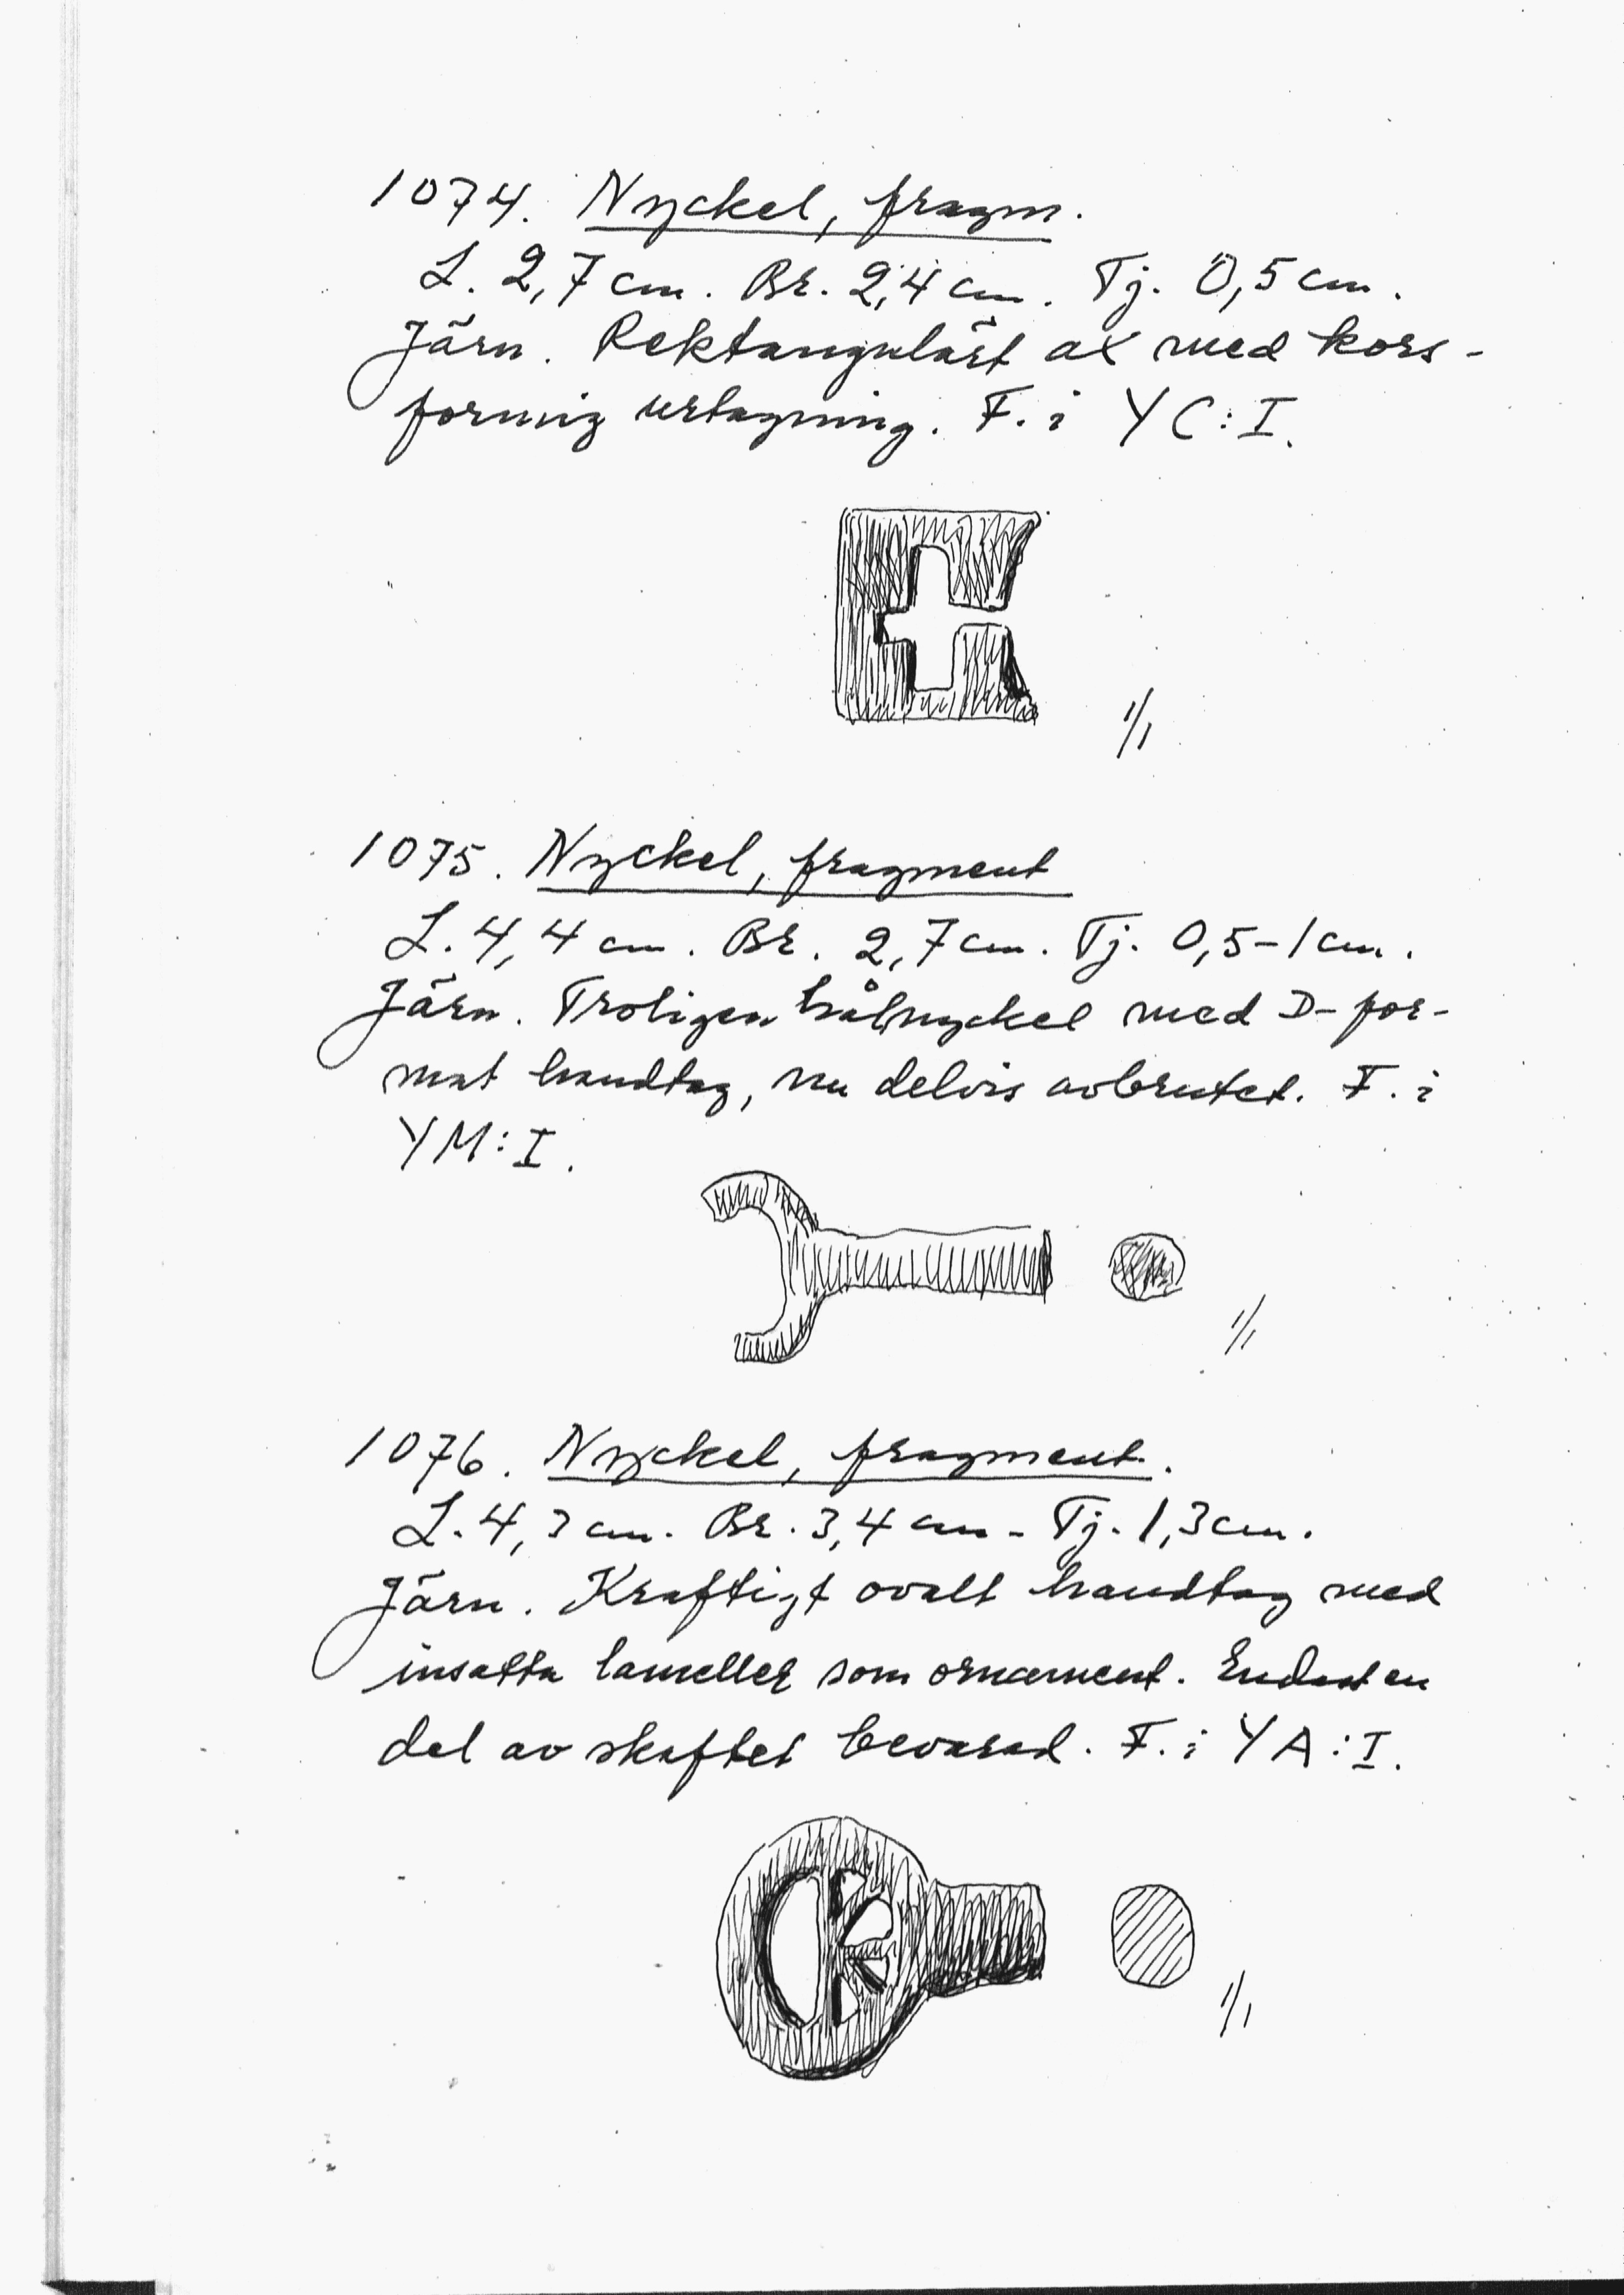 1074. Nyckel, fragm.
L. 2,7 cm. Br. 2,4 cm. Tj. 0,5 cm.
Järn. Rektangulärt ax med kors-
formig urtagning. F. i YC:I.
1/1
1075. Nyckel, fragment
L. 4,4 cm. Br. 2,7 cm. Tj. 0,5-1 cm.
Järn. Troligen hålnyckel med D-for-
mat handtag, nu delvis avbrutet. F. i
YM:I.
1/1
1076. Nyckel, fragment.
L. 4,3 cm. Br. 3,4 cm. Tj. 1,3 cm.
Järn. Kraftigt ovalt handtag med
insatta lameller som ornament. Endast en
del av skaftet bevarad. F. i YA:I.
1/1